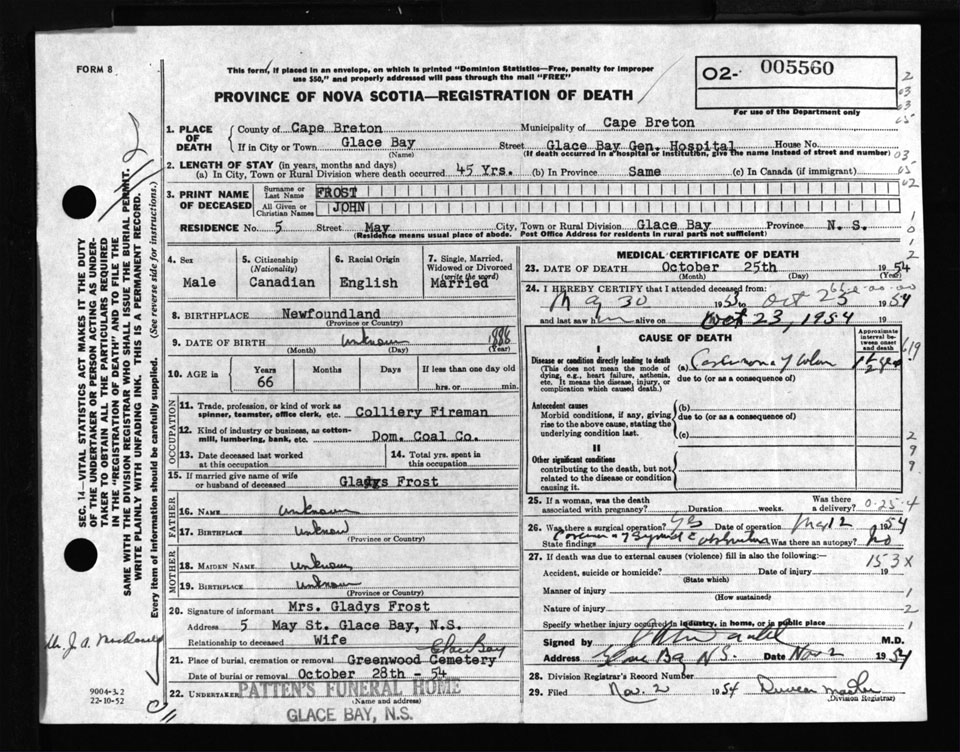 FORM 8
This form, if placed in an envelope, on which is printed "Dominion Statistics—Free, penalty for improper
use $50," and properly addressed will pass through the mail "FREE"
PROVINCE OF NOVA SCOTIA—REGISTRATION OF DEATH
02- 005560
For use of the Department only
2
03
03
05
03
05
02
1
0
1
2
SEC. 14—VITAL STATISTICS ACT MAKES IT THE DUTY
OF THE UNDERTAKER OR PERSON ACTING AS UNDER-
TAKER TO OBTAIN ALL THE PARTICULARS REQUIRED
IN THE "REGISTRATION OF DEATH" AND TO FILE THE
SAME WITH THE DIVISION REGISTRAR WHO SHALL ISSUE THE BURIAL PERMIT.
WRITE PLAINLY WITH UNFADING INK. THIS IS A PERMANENT RECORD.
Every item of information should be carefully supplied. (See reverse side for instructions.)
1. PLACE OF DEATH
County of Cape Breton Municipality of Cape Breton
If in City or Town Glace Bay Street Glace Bay Gen. Hospital House No.
(Name) (If death occurred in a hospital or institution, give the name instead of street and number)
2. LENGTH OF STAY (in years, months and days)
(a) In City, Town or Rural Division where death occurred 45 Yrs. (b) In Province Same (c) In Canada (if immigrant)
3. PRINT NAME OF DECEASED
Surname or Last Name FROST
All Given or Christian Names JOHN
RESIDENCE No. 5 Street May City, Town or Rural Division Glace Bay Province N. S.
(Residence means usual place of abode. Post Office Address for residents in rural parts not sufficient)
4. Sex
Male
5. Citizenship
(Nationality)
Canadian
6. Racial Origin
English
7. Single, Married,
Widowed or Divorced
(write the word)
Married
8. BIRTHPLACE Newfoundland
(Province or Country)
9. DATE OF BIRTH unknown 1886
(Month) (Day) (Year)
10. AGE in
Years Months Days If less than one day old
66 hrs. or min.
OCCUPATION
11. Trade, profession, or kind of work as
spinner, teamster, office clerk, etc. Colliery Fireman
12. Kind of industry or business, as cotton-
mill, lumbering, bank, etc. Dom. Coal Co.
13. Date deceased last worked
at this occupation
14. Total yrs. spent in
this occupation
15. If married give name of wife
or husband of deceased Gladys Frost
FATHER
16. NAME unknown
17. BIRTHPLACE unknown
(Province or Country)
MOTHER
18. MAIDEN NAME unknown
19. BIRTHPLACE unknown
(Province or Country)
20. Signature of informant Mrs. Gladys Frost
Address 5 May St. Glace Bay, N.S.
Relationship to deceased Wife
Glace Bay
21. Place of burial, cremation or removal Greenwood Cemetery
Date of burial or removal October 28th - 54
22. UNDERTAKER PATTEN'S FUNERAL HOME
(Name and address)
GLACE BAY, N.S.
Dr. J. A. MacDonald
9004-3.2
22-10-52
MEDICAL CERTIFICATE OF DEATH
23. DATE OF DEATH October 25th 1954
(Month) (Day) (Year)
24. I HEREBY CERTIFY that I attended deceased from:
30 1953 to Oct 25 1954
and last saw him alive on Oct 23, 1954 19
CAUSE OF DEATH
Approximate
interval be-
tween onset
and death
I
Disease or condition directly leading to death
(This does not mean the mode of
dying, e.g., heart failure, asthenia,
etc. It means the disease, injury, or
complication which caused death.)
(a) Carcinoma of colon
due to (or as a consequence of)
Antecedent causes
Morbid conditions, if any, giving
rise to the above cause, stating the
underlying condition last.
(b)
due to (or as a consequence of)
(c)
II
Other significant conditions
contributing to the death, but not
related to the disease or condition
causing it.
619
2
9
9
25. If a woman, was the death
associated with pregnancy? Duration weeks. Was there
a delivery? 0-25-4
26. Was there a surgical operation? Yes Date of operation 1954
State findings Carcinoma of Sigmoid Was there an autopsy? No
27. If death was due to external causes (violence) fill in also the following:—
153X
Accident, suicide or homicide? Date of injury 19
(State which)
Manner of injury 1
(How sustained)
Nature of injury 2
Specify whether injury occurred in industry, in home, or in public place 1
Signed by M.D.
Address Glace Bay N.S. Date Nov 2 1954
28. Division Registrar's Record Number
29. Filed Nov. 2 1954 Duncan
(Division Registrar)